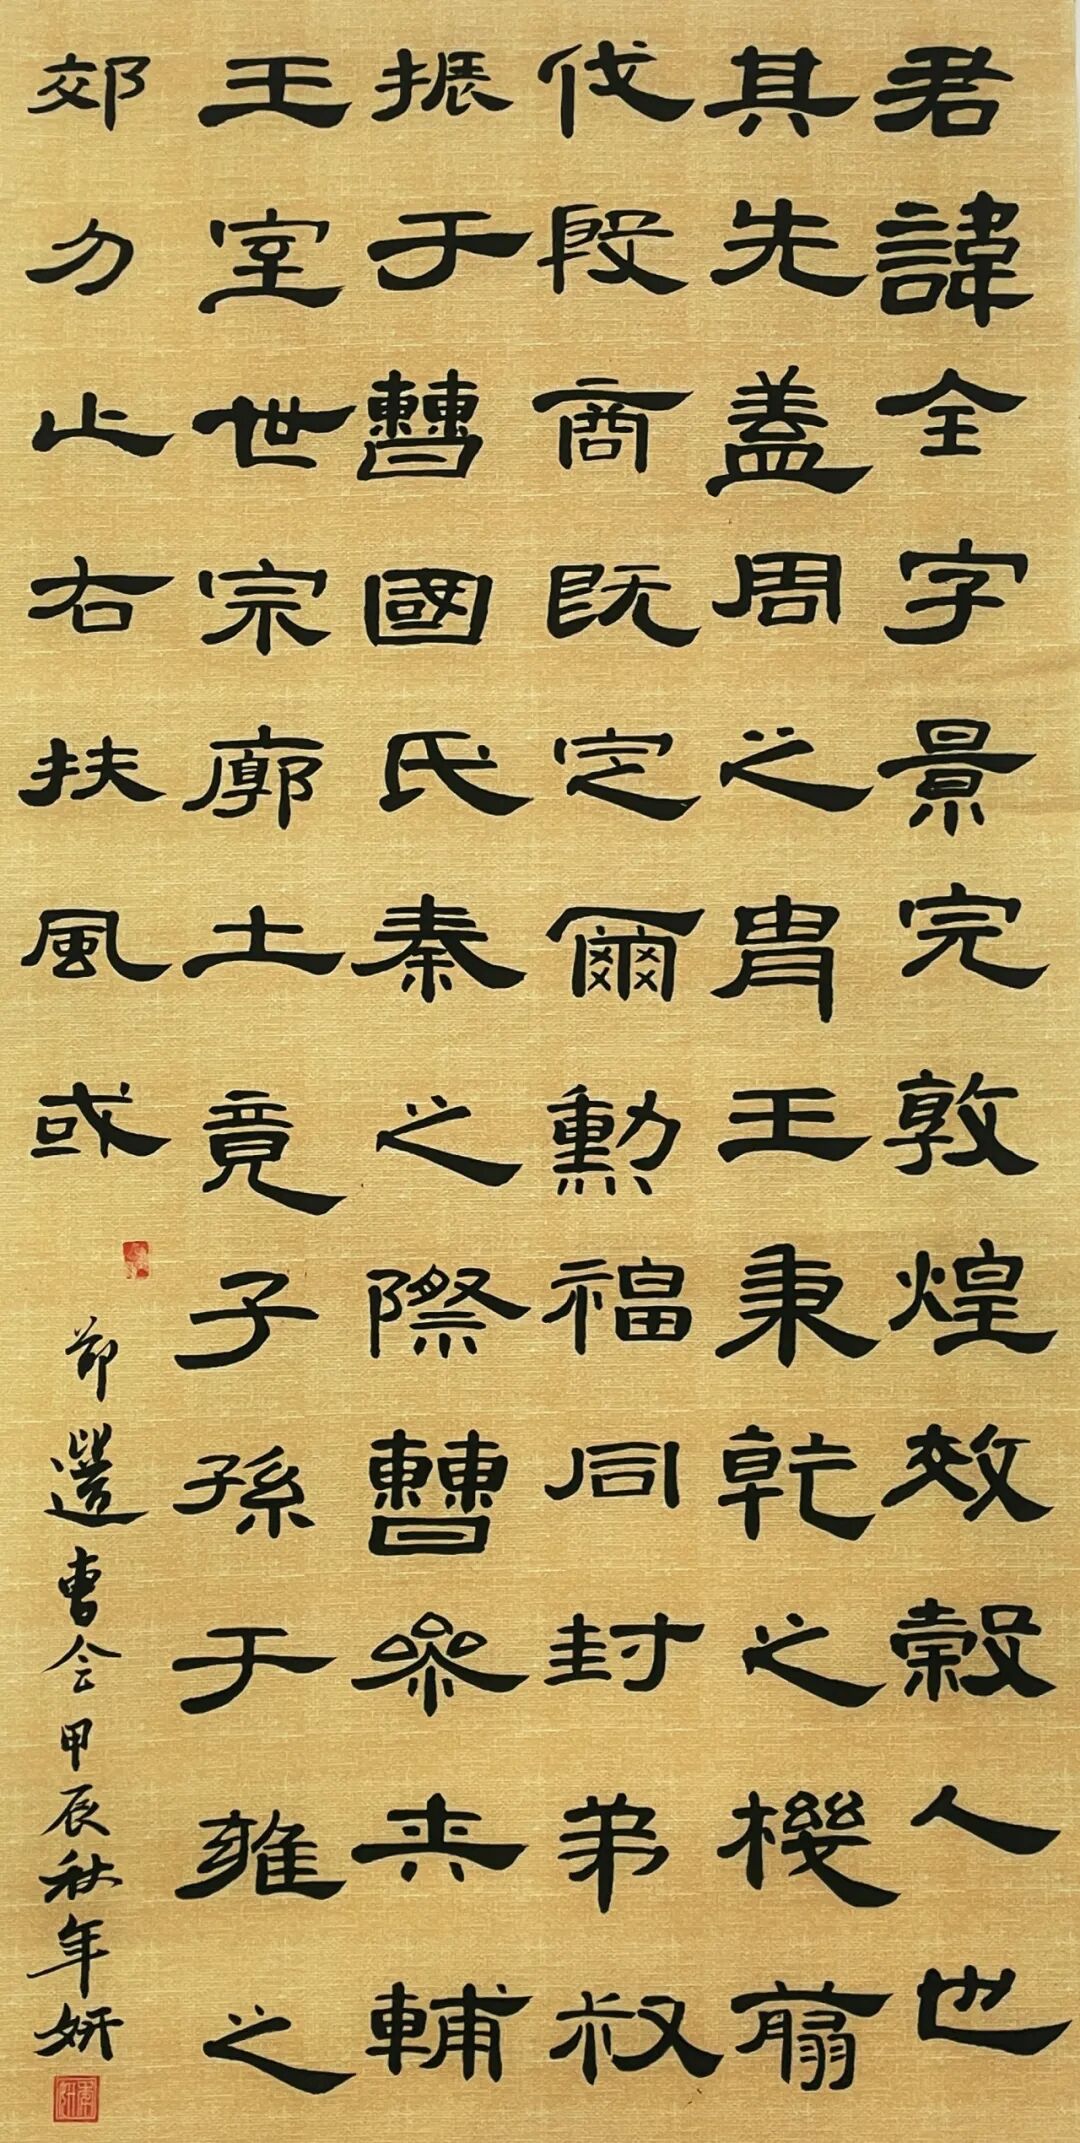 君諱全字景完敦煌效穀人也
其先蓋周之胄王秉乾之機翦
伐殷商既定爾勳福同封弟叔
振于曹國氏焉秦之際曹參夾輔
王室世宗廓土竟子孫于雍之
郊分止右扶風或
節選曹全 甲辰秋年妍